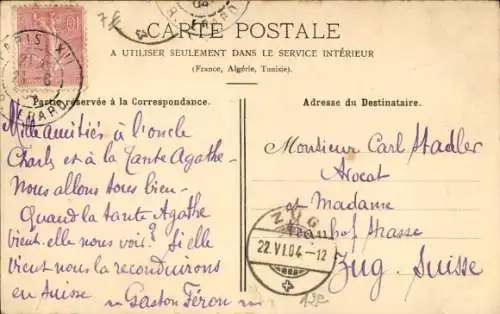 CARTE POSTALE
A UTILISER SEULEMENT DANS LE SERVICE INTÉRIEUR
(France, Algérie, Tunisie).
Partie réservée à la Correspondance.
Mille amitiés à l'oncle
Charles et à la tante Agathe -
Nous allons tous bien -
Quand la tante Agathe
vient-elle nous voir? Si elle
vient nous la reconduirons
en Suisse
Gaston Féron
Adresse du Destinataire.
Monsieur Carl Stadler
Avocat
et Madame
Neuhof strasse
Zug. Suisse
ZUG
22.VI.04.-12
PARIS XVI